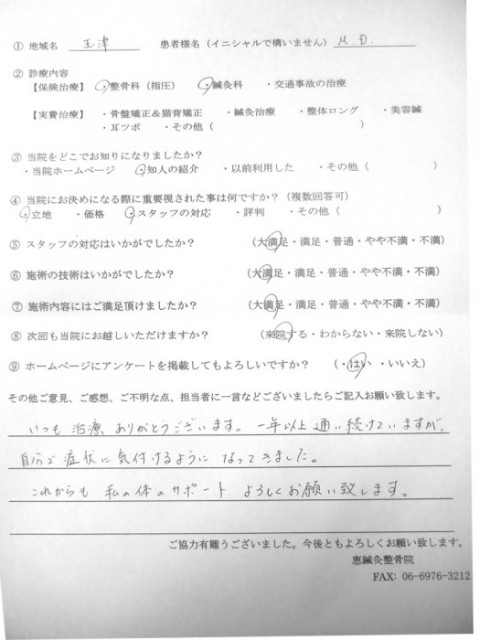 ① 地域名 玉津 患者様名(イニシャルで構いません) M.D.
② 診療内容
【保険治療】 ・整骨科(指圧) ・鍼灸科 ・交通事故の治療
【実費治療】 ・骨盤矯正&猫背矯正 ・鍼灸治療 ・整体ロング ・美容鍼
・耳ツボ ・その他( )
③ 当院をどこでお知りになりましたか?
・当院ホームページ ・知人の紹介 ・以前利用した ・その他( )
④ 当院にお決めになる際に重要視された事は何ですか?(複数回答可)
・立地 ・価格 ・スタッフの対応 ・評判 ・その他( )
⑤ スタッフの対応はいかがでしたか? (大満足・満足・普通・やや不満・不満)
⑥ 施術の技術はいかがでしたか? (大満足・満足・普通・やや不満・不満)
⑦ 施術内容にはご満足頂けましたか? (大満足・満足・普通・やや不満・不満)
⑧ 次回も当院にお越しいただけますか? (来院する・わからない・来院しない)
⑨ ホームページにアンケートを掲載してもよろしいですか? (・はい・いいえ)
その他ご意見、ご感想、ご不明な点、担当者に一言などございましたらご記入お願い致します。
いつも治療ありがとうございます。一年以上通い続けていますが、
自分で症状に気付けるようになってきました。
これからも私の体のサポートよろしくお願い致します。
ご協力有難うございました。今後ともよろしくお願い致します。
恵鍼灸整骨院
FAX: 06-6976-3212